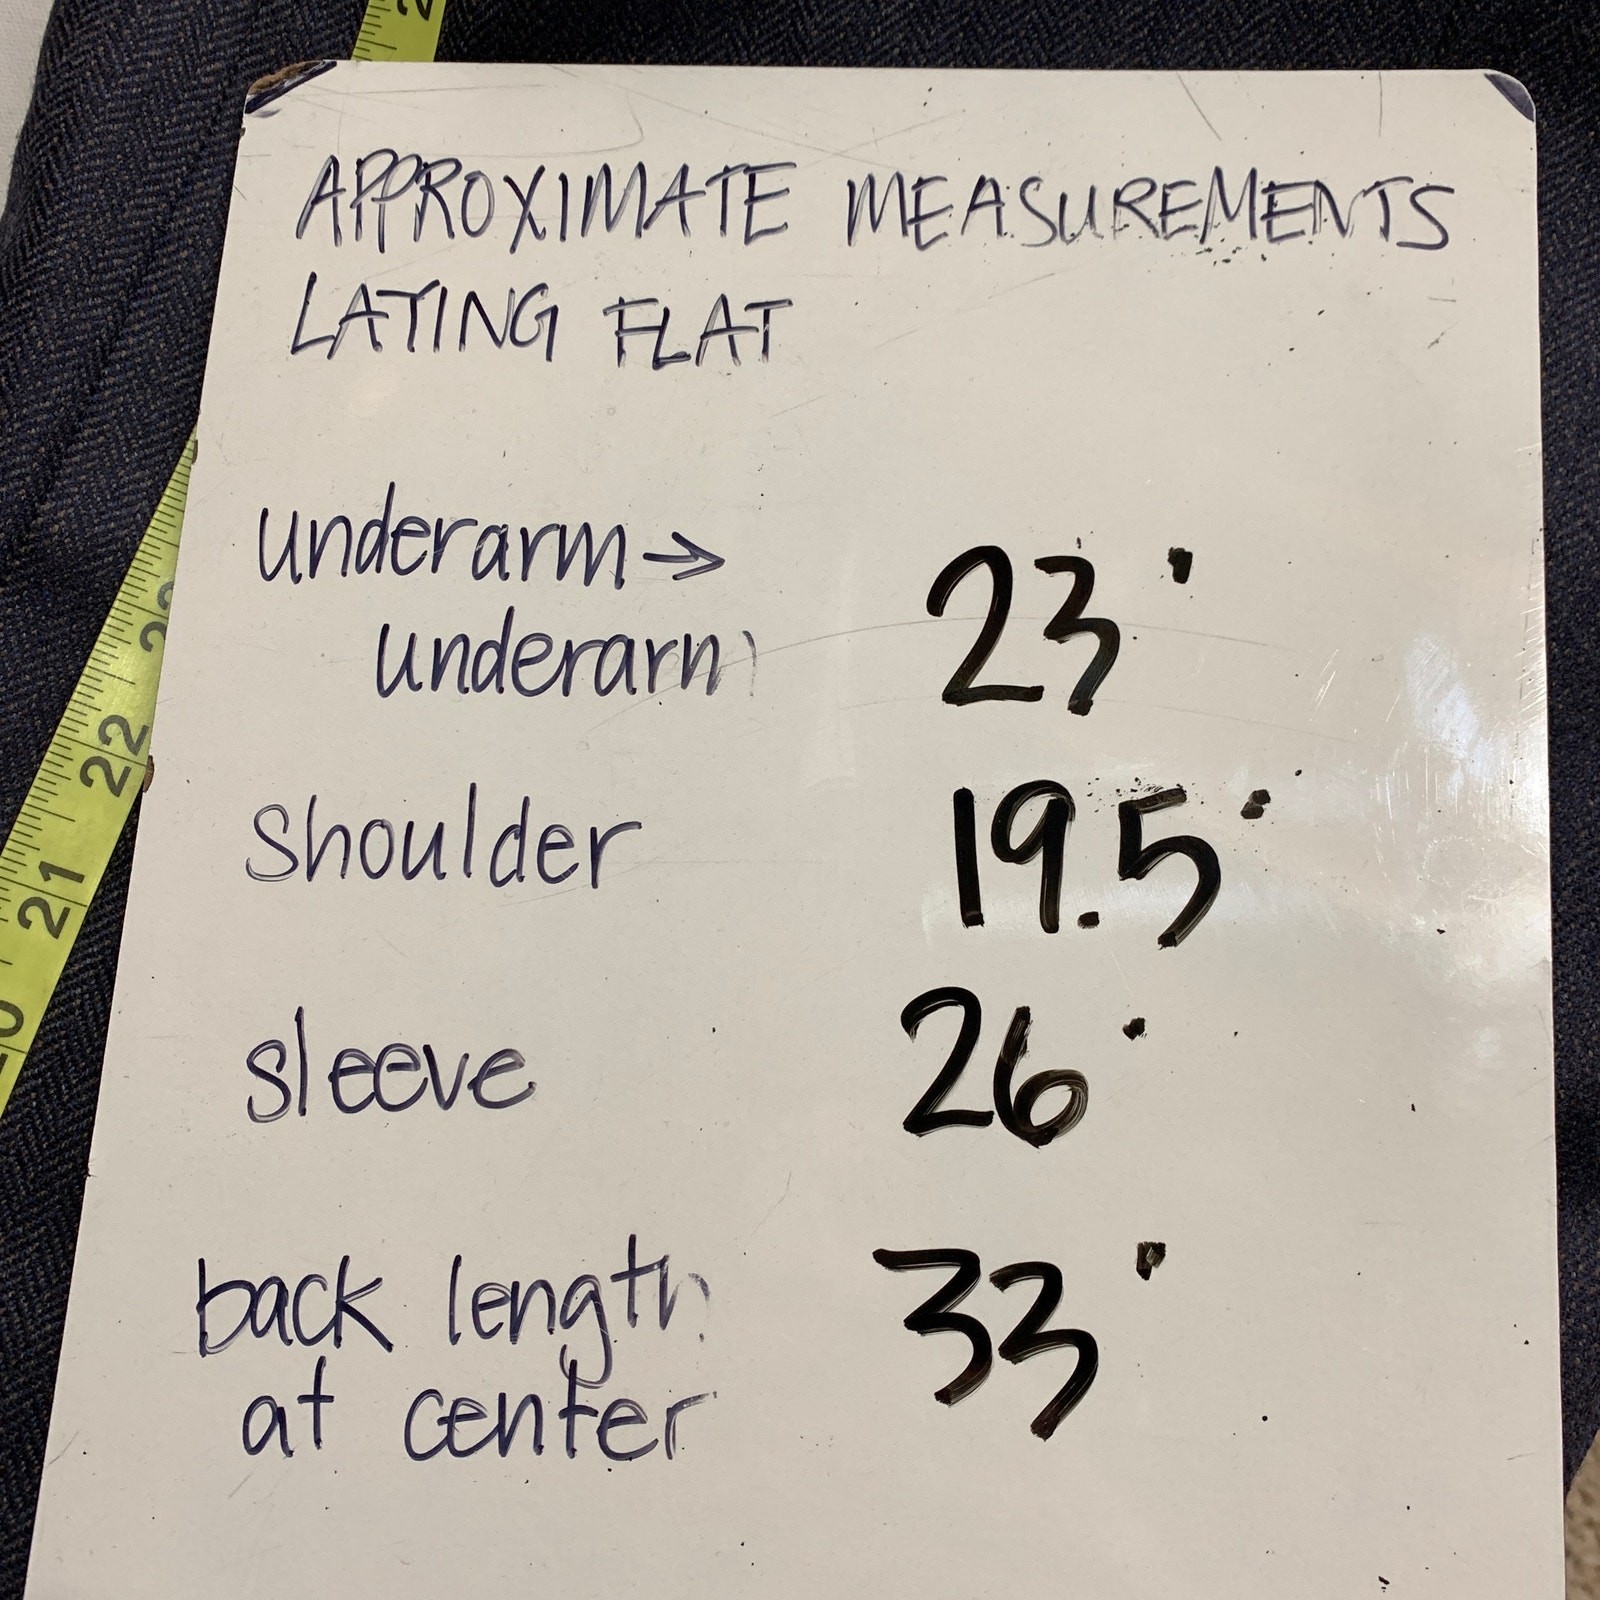 APPROXIMATE MEASUREMENTS
LAYING FLAT
underarm →
underarm
23"
shoulder 19.5"
sleeve 26"
back length
at center
33"
22
21
20